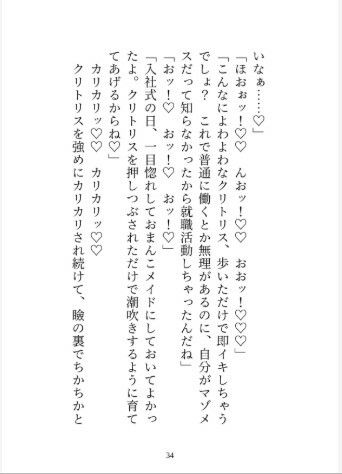 いなぁ……♡」
「ほおぉッ！♡♡　んおッ！♡♡　おおッ！♡♡♡」
「こんなによわよわなクリトリス、歩いただけで即イキしちゃう
でしょ？　これで普通に働くとか無理があるのに、自分がマゾメ
スだって知らなかったから就職活動しちゃったんだね」
「おッ！♡　おッ！♡　おッ！♡」
「入社式の日、一目惚れしておまんこメイドにしておいてよかっ
たよ。クリトリスを押しつぶされただけで潮吹きするように育て
てあげるからね♡」
カリカリッ♡♡　カリカリッ♡♡
クリトリスを強めにカリカリされ続けて、瞼の裏でちかちかと
34